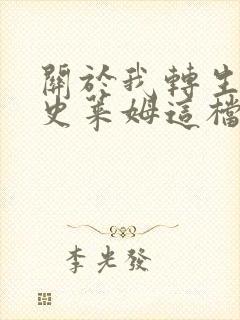 關於我轉生
史萊姆這檔
李光發